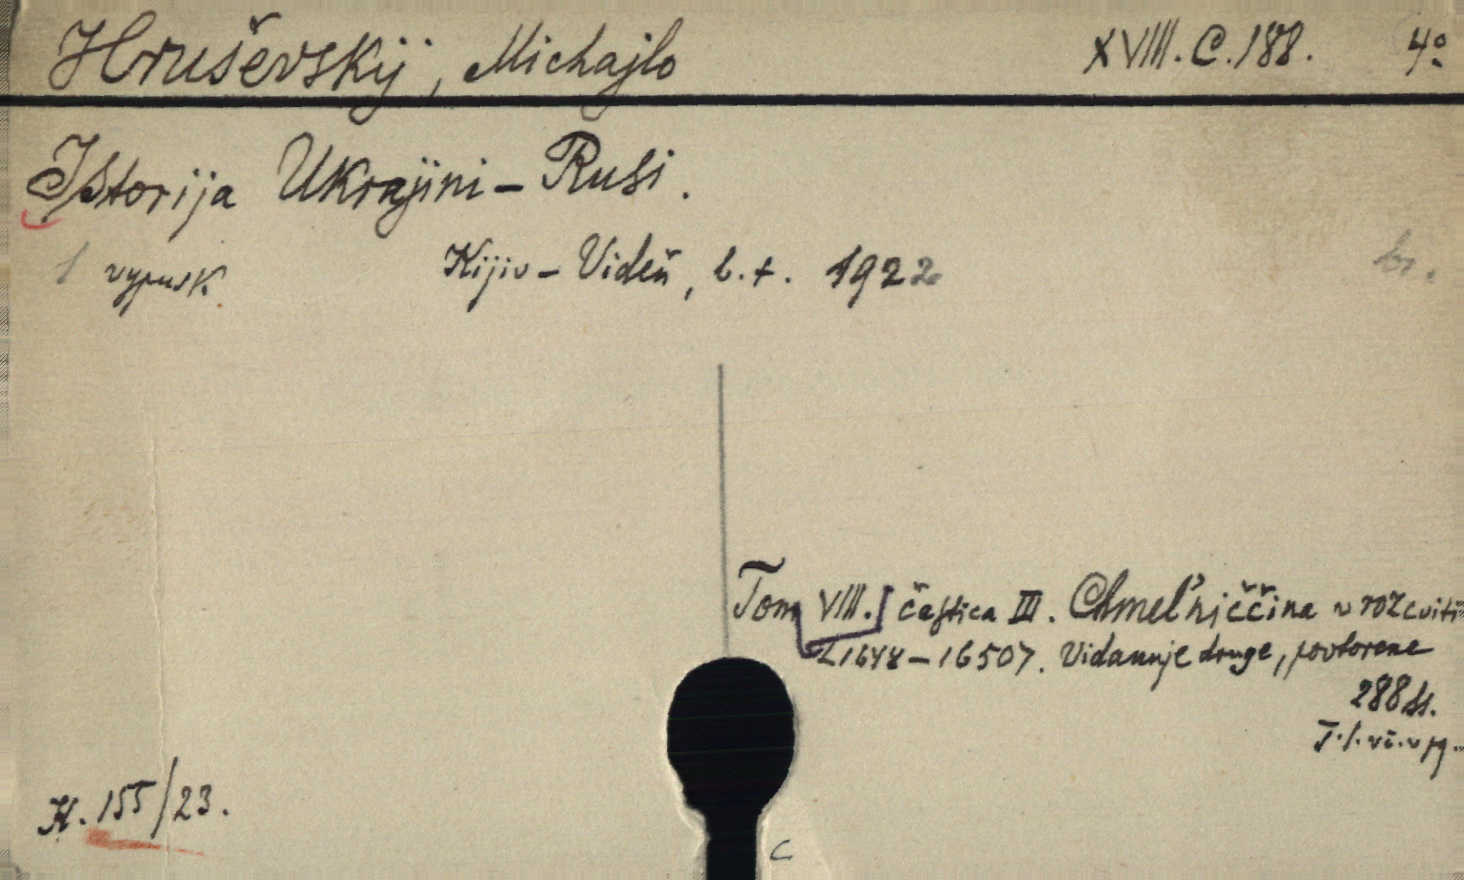 Hruševskij, Michajlo XVIII.C.188. 4°
Istorija Ukrajini-Rusi.
1 vypusk Kijiv-Videň, b.t. 1922 br.
Tom VIII. častica III. Chmel'niččina v rozcviti
<1648-1650>. Vidannje druge, povtorene
288 ss.
K. 155/23.
C